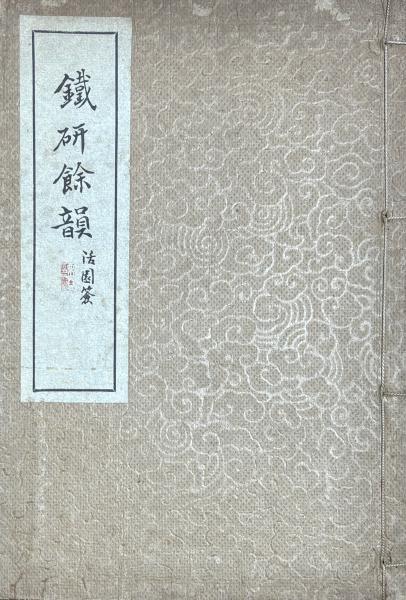 鐵研餘韻
活園簽